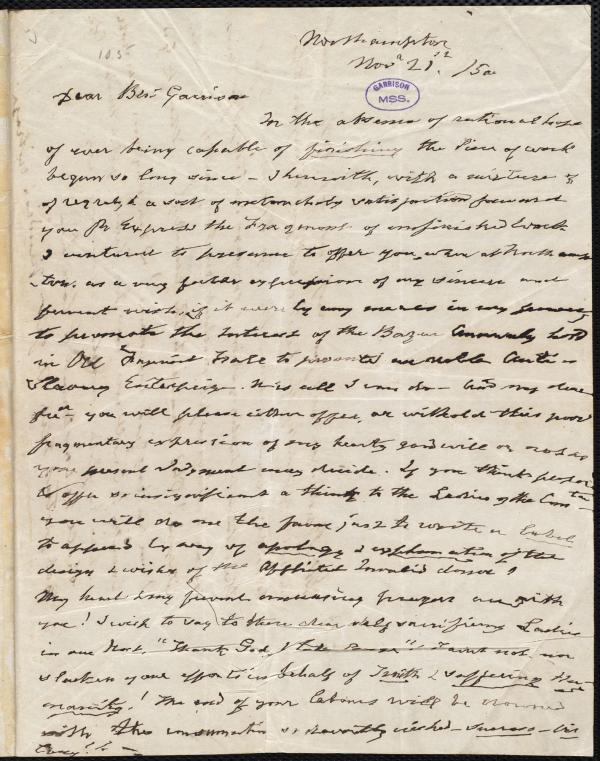 Northampton
Nov 21st /50
GARRISON
MSS.
Dear Bro. Garrison
In the absence of rational hope
of ever being capable of finishing the Piece of work
begun so long since - I herewith, with a mixture of
of regret & a sort of melancholy satisfaction forward
you Pr Express the Fragment of unfinished work
I ventured to presume to offer you when at Northamp
-ton. as a very feeble expression of my sincere and
fervent wish, if it were by any means in my power
to promote the Interest of the Bazar Annually held
in Old to promote Anti-
Slavery Enterprize. It is all I can do - And my dear
you will please either offer, or withhold this poor
fragmentary expression of my hearty good will or not as
your present Judgment may decide. If you think
to offer so insignificant a thing to the Ladies of the
you will do me the favor just to write a label
to append by way of apology & explanation of the
design & wishes of the Afflicted Invalid donor!
My heart & my prayers are with
you! I wish to say to those dear self sacrificing Ladies
in our "Thank God, & take not, nor
slacken your efforts in behalf of Truth & suffering Hu-
manity! The end of your labours will be crowned
with the consummation so devoutly wished - success - vic
tory!! -